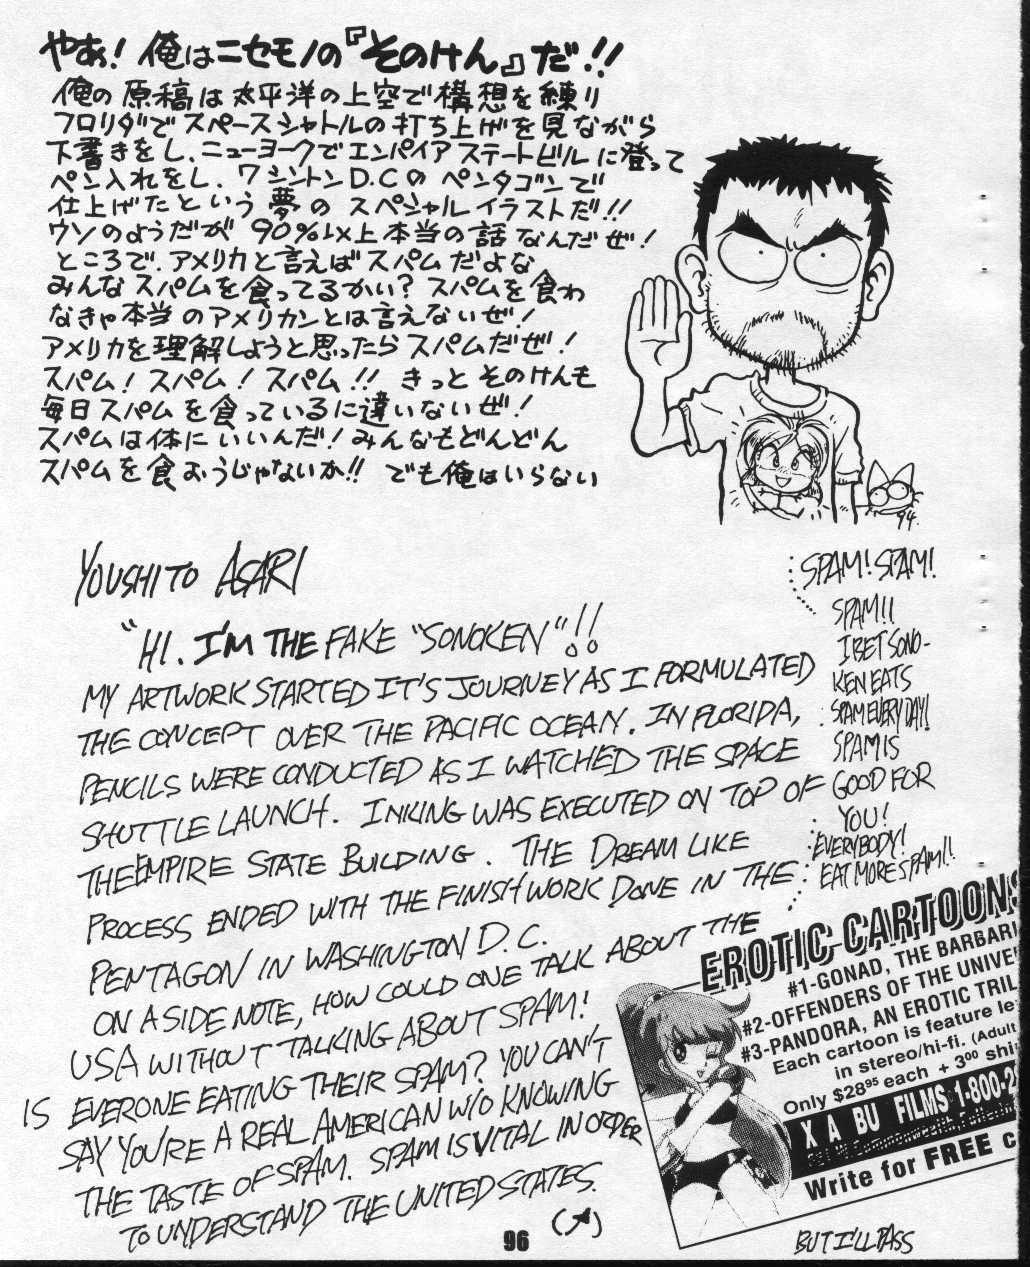 やあ！俺はニセモノの『そのけん』だ！！
俺の原稿は太平洋の上空で構想を練り
フロリダでスペースシャトルの打ち上げを見ながら
下書きをし、ニューヨークでエンパイアステートビルに登って
ペン入れをし、ワシントンD.Cのペンタゴンで
仕上げたという夢のスペシャルイラストだ！！
ウソのようだが90%以上本当の話なんだぜ！
ところで、アメリカと言えばスパムだよな
みんなスパムを食ってるかい？スパムを食わ
なきゃ本当のアメリカンとは言えないぜ！
アメリカを理解しようと思ったらスパムだぜ！
スパム！スパム！スパム！！きっとそのけんも
毎日スパムを食っているに違いないぜ！
スパムは体にいいんだ！みんなもどんどん
スパムを食おうじゃないか！！でも俺はいらない
94.
YOUSHITO ASARI
"HI. I'M THE FAKE "SONOKEN"!!
MY ARTWORK STARTED IT'S JOURNEY AS I FORMULATED
THE CONCEPT OVER THE PACIFIC OCEAN. IN FLORIDA,
PENCILS WERE CONDUCTED AS I WATCHED THE SPACE
SHUTTLE LAUNCH. INKING WAS EXECUTED ON TOP OF
THE EMPIRE STATE BUILDING. THE DREAM LIKE
PROCESS ENDED WITH THE FINISH WORK DONE IN THE
PENTAGON IN WASHINGTON D.C.
ON A SIDE NOTE, HOW COULD ONE TALK ABOUT THE
USA WITHOUT TALKING ABOUT SPAM!
IS EVERONE EATING THEIR SPAM? YOU CAN'T
SAY YOU'RE A REAL AMERICAN W/O KNOWING
THE TASTE OF SPAM. SPAM IS VITAL IN ORDER
TO UNDERSTAND THE UNITED STATES.
SPAM! SPAM!
SPAM!!
I BET SONO-
KEN EATS
SPAM EVERY DAY!
SPAM IS
GOOD FOR
YOU!
EVERYBODY!
EAT MORE SPAM!!
EROTIC CARTOONS
#1-GONAD, THE BARBARI
#2-OFFENDERS OF THE UNIVE
#3-PANDORA, AN EROTIC TRIL
Each cartoon is feature le
in stereo/hi-fi. (Adult
Only $28⁹⁵ each + 3⁰⁰ shi
X A BU FILMS 1-800-2
Write for FREE c
96
BUT I'LL PASS